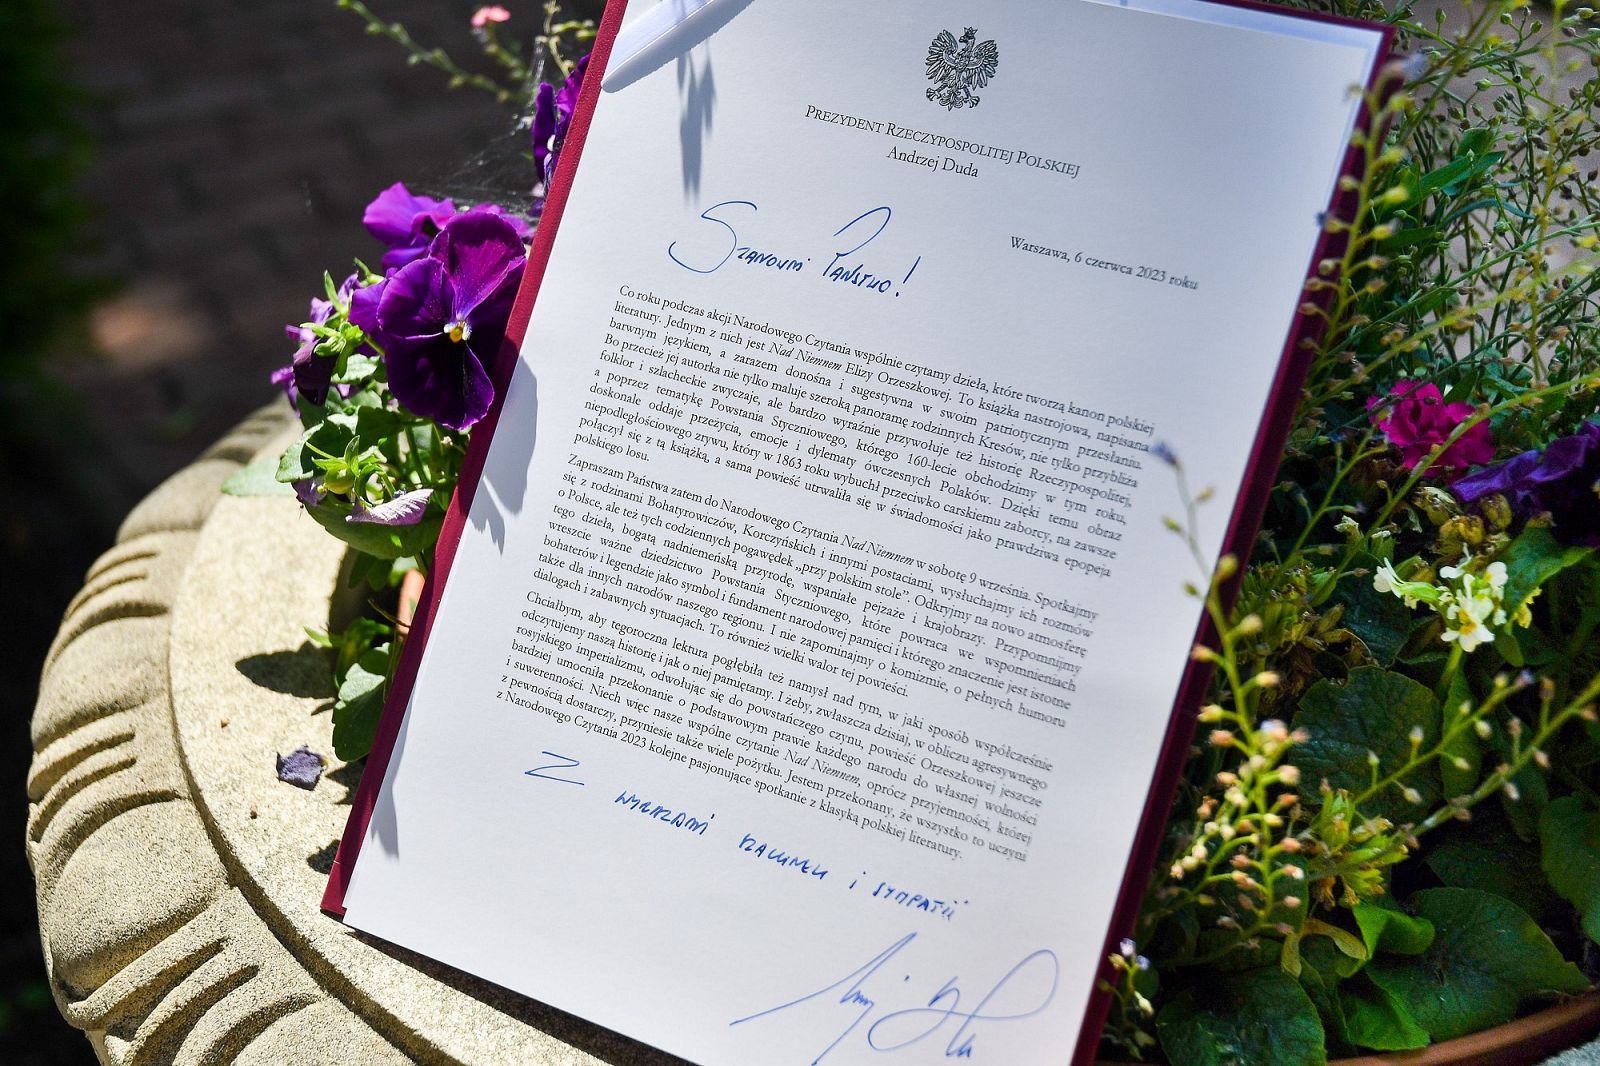 PREZYDENT RZECZYPOSPOLITEJ POLSKIEJ
Andrzej Duda
Warszawa, 6 czerwca 2023 roku
Szanowni Państwo!
Co roku podczas akcji Narodowego Czytania wspólnie czytamy dzieła, które tworzą kanon polskiej
literatury. Jednym z nich jest Nad Niemnem Elizy Orzeszkowej. To książka nastrojowa, napisana
barwnym językiem, a zarazem donośna i sugestywna w swoim patriotycznym przesłaniu.
Bo przecież jej autorka nie tylko maluje szeroką panoramę rodzinnych Kresów, nie tylko przybliża
folklor i szlacheckie zwyczaje, ale bardzo wyraźnie przywołuje też historię Rzeczypospolitej,
a poprzez tematykę Powstania Styczniowego, którego 160-lecie obchodzimy w tym roku,
doskonale oddaje przeżycia, emocje i dylematy ówczesnych Polaków. Dzięki temu obraz
niepodległościowego zrywu, który w 1863 roku wybuchł przeciwko carskiemu zaborcy, na zawsze
połączył się z tą książką, a sama powieść utrwaliła się w świadomości jako prawdziwa epopeja
polskiego losu.
Zapraszam Państwa zatem do Narodowego Czytania Nad Niemnem w sobotę 9 września. Spotkajmy
się z rodzinami Bohatyrowiczów, Korczyńskich i innymi postaciami, wysłuchajmy ich rozmów
o Polsce, ale też tych codziennych pogawędek „przy polskim stole”. Odkryjmy na nowo atmosferę
tego dzieła, bogatą nadniemeńską przyrodę, wspaniałe pejzaże i krajobrazy. Przypomnijmy
wreszcie ważne dziedzictwo Powstania Styczniowego, które powraca we wspomnieniach
bohaterów i legendzie jako symbol i fundament narodowej pamięci i którego znaczenie jest istotne
także dla innych narodów naszego regionu. I nie zapominajmy o komizmie, o pełnych humoru
dialogach i zabawnych sytuacjach. To również wielki walor tej powieści.
Chciałbym, aby tegoroczna lektura pogłębiła też namysł nad tym, w jaki sposób współcześnie
odczytujemy naszą historię i jak o niej pamiętamy. I żeby, zwłaszcza dzisiaj, w obliczu agresywnego
rosyjskiego imperializmu, odwołując się do powstańczego czynu, powieść Orzeszkowej jeszcze
bardziej umocniła przekonanie o podstawowym prawie każdego narodu do własnej wolności
i suwerenności. Niech więc nasze wspólne czytanie Nad Niemnem, oprócz przyjemności, której
z pewnością dostarczy, przyniesie także wiele pożytku. Jestem przekonany, że wszystko to uczyni
z Narodowego Czytania 2023 kolejne pasjonujące spotkanie z klasyką polskiej literatury.
Z wyrazami szacunku i sympatii